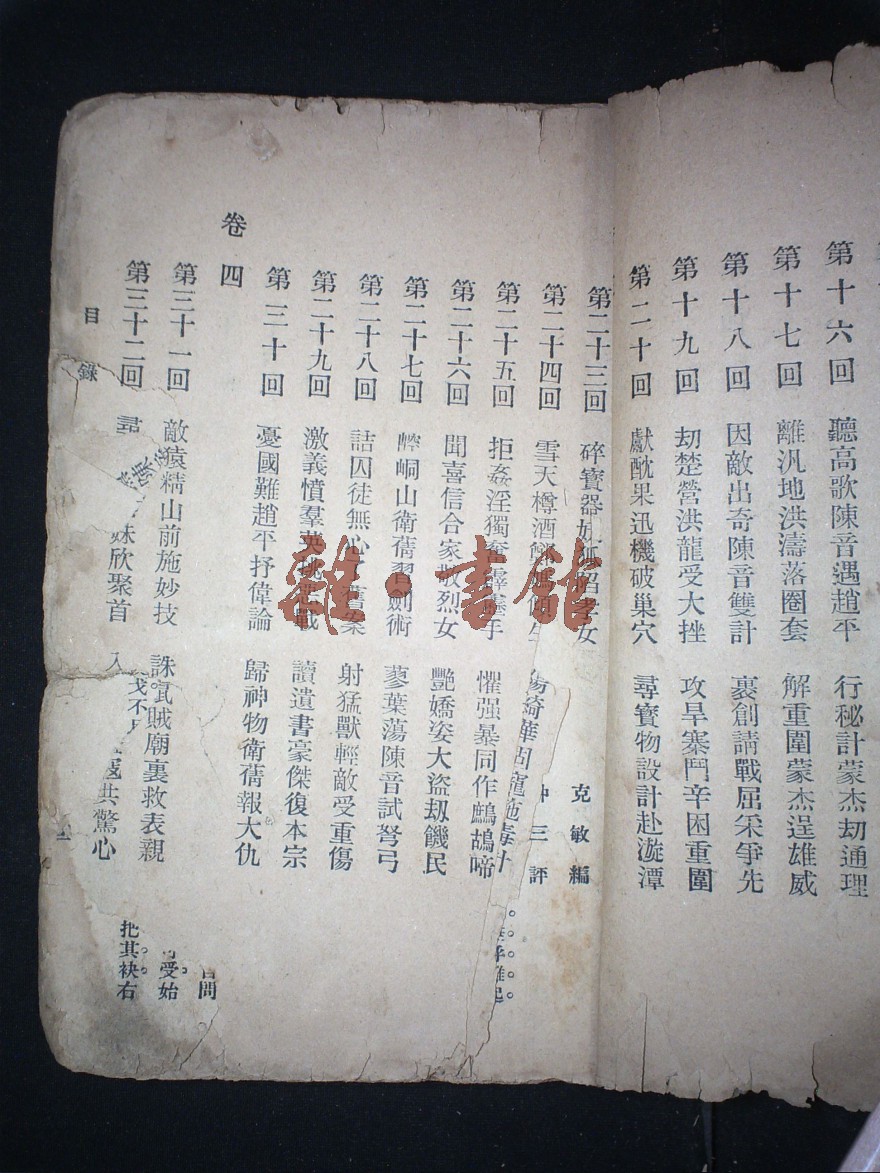 第十六回 聽高歌陳音遇趙平 行秘計蒙杰劫通理
第十七回 離汎地洪濤落圈套 解重圍蒙杰逞雄威
第十八回 因敵出奇陳音雙計 裹創請戰屈采爭先
第十九回 刧楚營洪龍受大挫 攻旱寨鬥辛困重圍
第二十回 獻酖果迅機破巢穴 尋寶物設計赴漩潭
第二十三回 碎寶器 女
克敏編
第二十四回 雪天樽酒
三評
施毒計
第二十五回 拒姦淫獨 手 懼强暴同作鷓鴣啼
第二十六回 聞喜信合家 烈女 艷嬌姿大盜刼饑民
第二十七回 崆峒山衛蒨習劍術 蓼葉蕩陳音試弩弓
第二十八回 詰囚徒無心 舊案 射猛獸輕敵受重傷
第二十九回 激義憤羣英挑 戰 讀遺書豪傑復本宗
第三十回 憂國難趙平抒偉論 歸神物衛蒨報大仇
卷四
第三十一回 敵猿精山前施妙技 誅 賊廟裏救表親
第三十二回 尋 妹欣聚首 共驚心
目錄
問
受始
把其袂右
雜·書館